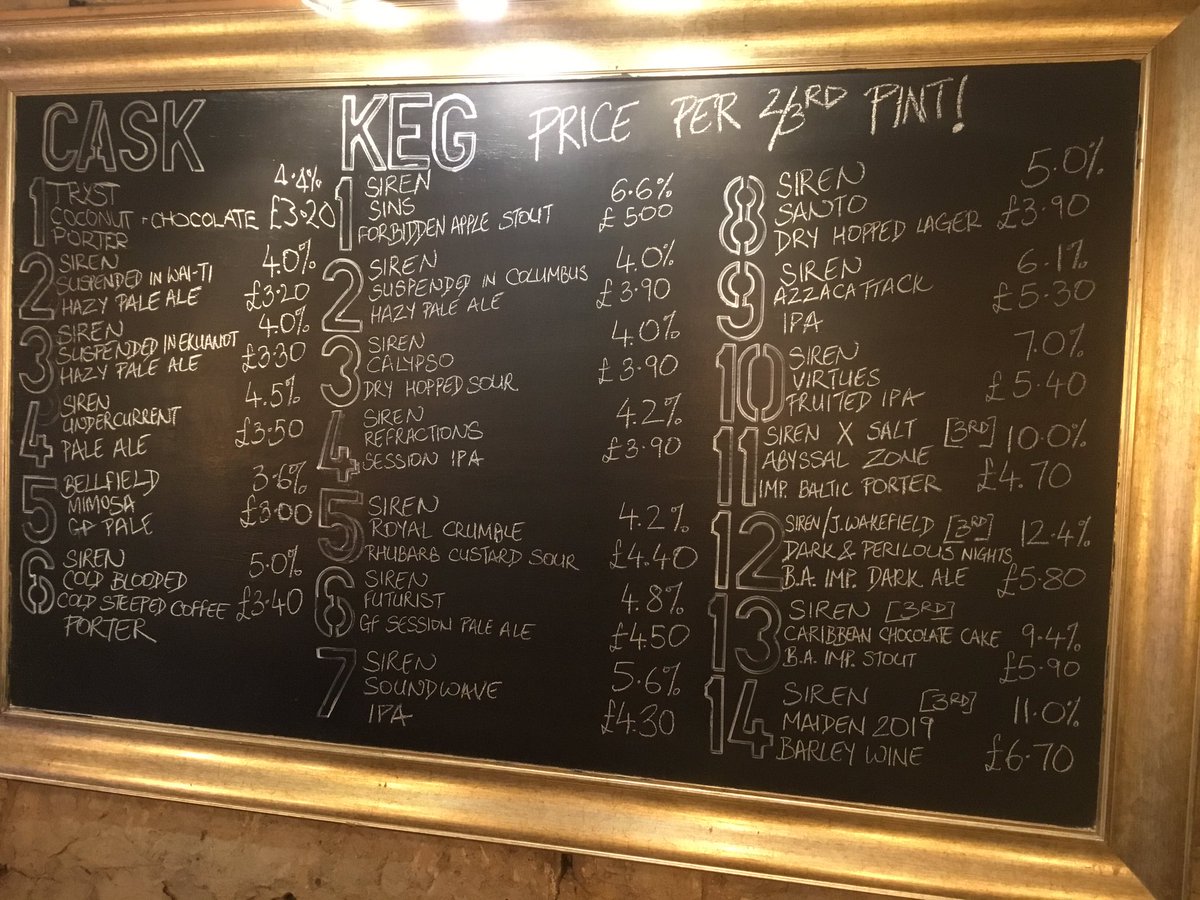 CASK
1 TRYST 4.4%
COCONUT + CHOCOLATE £3.20
PORTER
2 SIREN 4.0%
SUSPENDED IN WAI-TI
HAZY PALE ALE £3.20
3 SIREN 4.0%
SUSPENDED IN EKUANOT
HAZY PALE ALE £3.30
4 SIREN 4.5%
UNDERCURRENT
PALE ALE £3.50
5 BELLFIELD 3.6%
MIMOSA
GF PALE £3.00
6 SIREN 5.0%
COLD BLOODED
COLD STEEPED COFFEE £3.40
PORTER
KEG PRICE PER 2/3RD PINT!
1 SIREN 6.6%
SINS
FORBIDDEN APPLE STOUT £500
2 SIREN 4.0%
SUSPENDED IN COLUMBUS
HAZY PALE ALE £3.90
3 SIREN 4.0%
CALYPSO
DRY HOPPED SOUR £3.90
4 SIREN 4.2%
REFRACTIONS
SESSION IPA £3.90
5 SIREN 4.2%
ROYAL CRUMBLE
RHUBARB CUSTARD SOUR £4.40
6 SIREN 4.8%
FUTURIST
GF SESSION PALE ALE £450
7 SIREN 5.6%
SOUNDWAVE
IPA £4.30
8 SIREN 5.0%
SANTO
DRY HOPPED LAGER £3.90
9 SIREN 6.1%
AZZACATTACK £5.30
IPA
10 SIREN 7.0%
VIRTUES
FRUITED IPA £5.40
11 SIREN X SALT [3RD] 10.0%
ABYSSAL ZONE
IMP. BALTIC PORTER £4.70
12 SIREN/J.WAKEFIELD [3RD] 12.4%
DARK & PERILOUS NIGHTS
B.A. IMP. DARK ALE £5.80
13 SIREN [3RD]
CARIBBEAN CHOCOLATE CAKE 9.4%
B.A. IMP. STOUT £5.90
14 SIREN [3RD] 11.0%
MAIDEN 2019
BARLEY WINE £6.70